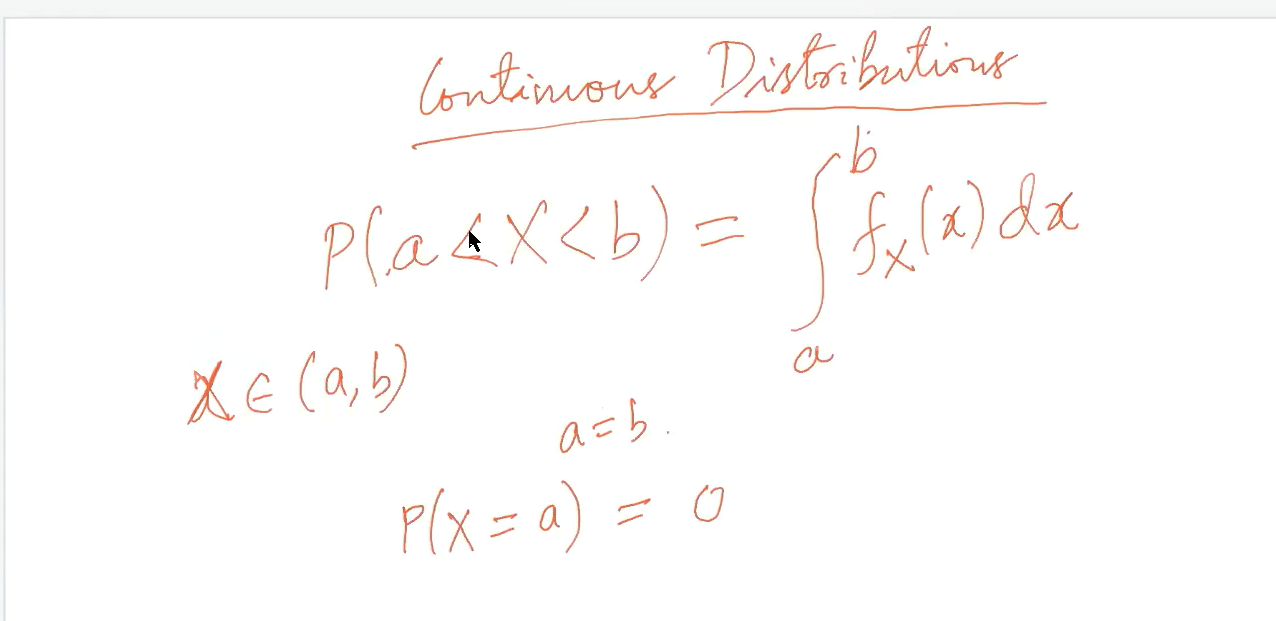 Continuous Distributions
P(a < X < b) = ∫_a^b f_X(x) dx
X ∈ (a,b)
a = b.
P(X = a) = 0